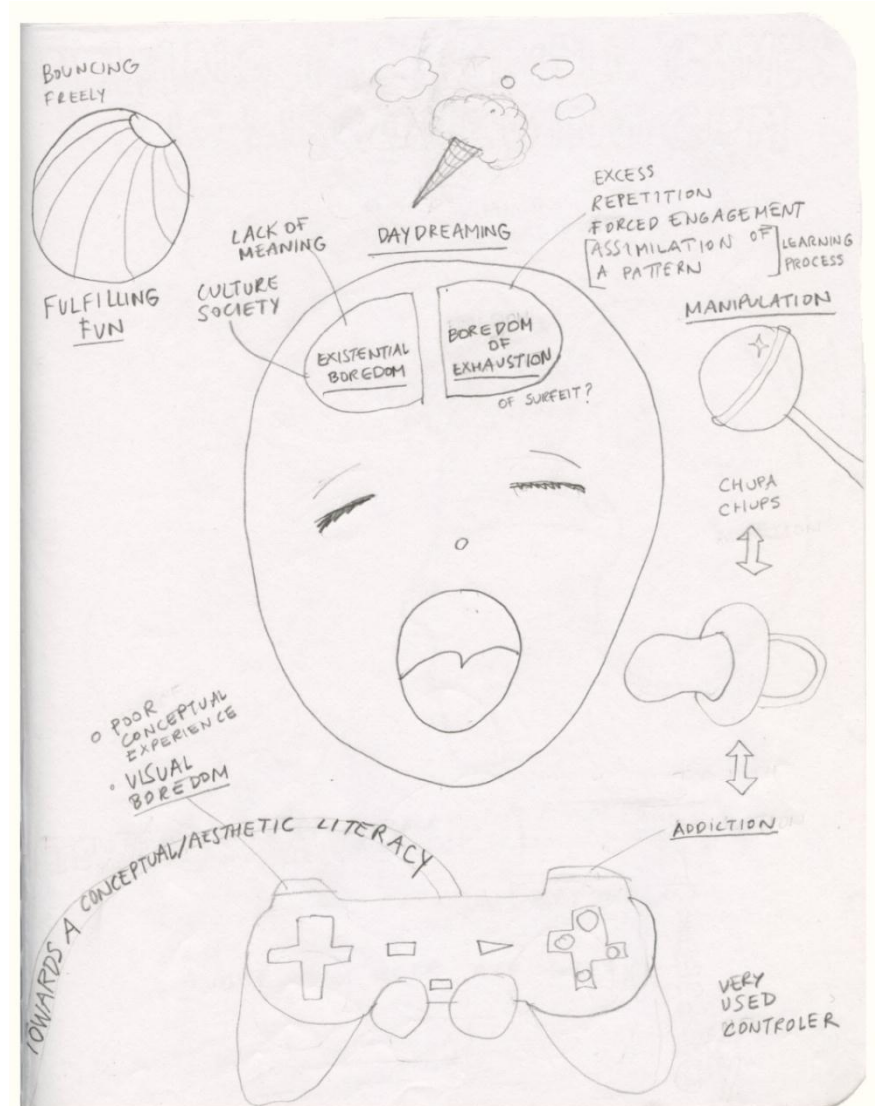 BOUNCING
FREELY
FULFILLING
FUN
DAYDREAMING
LACK OF
MEANING
CULTURE
SOCIETY
EXISTENTIAL
BOREDOM
EXCESS
REPETITION
FORCED ENGAGEMENT
[ASSIMILATION OF
A PATTERN]
LEARNING
PROCESS
BOREDOM
OF
EXHAUSTION
OF SURFEIT?
MANIPULATION
CHUPA
CHUPS
ADDICTION
O POOR
CONCEPTUAL
EXPERIENCE
• VISUAL
BOREDOM
TOWARDS A CONCEPTUAL/AESTHETIC LITERACY
VERY
USED
CONTROLER